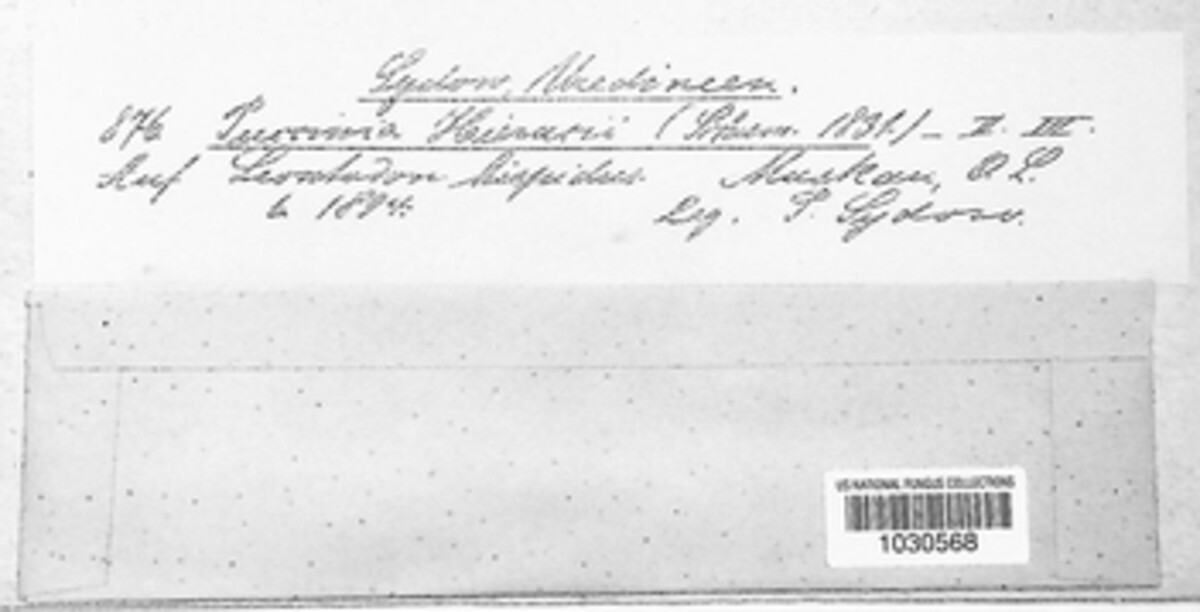 Sydow, Uredineen.
876 Puccinia Hieracii (Schum. 1801.) – II. III.
Auf Leontodon hispidus. Muskau, O. L.
6 1894. Leg. P. Sydow.
US NATIONAL FUNGUS COLLECTIONS
1030568